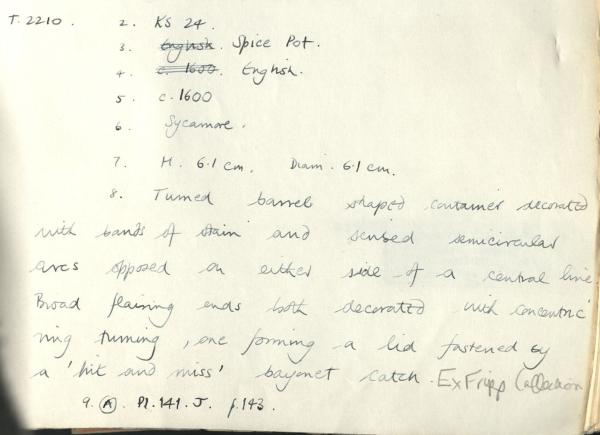 T. 2210. 2. KS 24.
3. English. Spice Pot.
4. c. 1600. English.
5. c. 1600
6. Sycamore.
7. H. 6.1 cm. Diam. 6.1 cm.
8. Turned barrel shaped container decorated
with bands of stain and scribed semicircular
arcs opposed on either side of a central line
Broad flairing ends both decorated with concentric
ring turning, one forming a lid fastened by
a 'hit and miss' bayonet catch. Ex Fripp Collection
9. A. Pl. 141. J. p. 143.